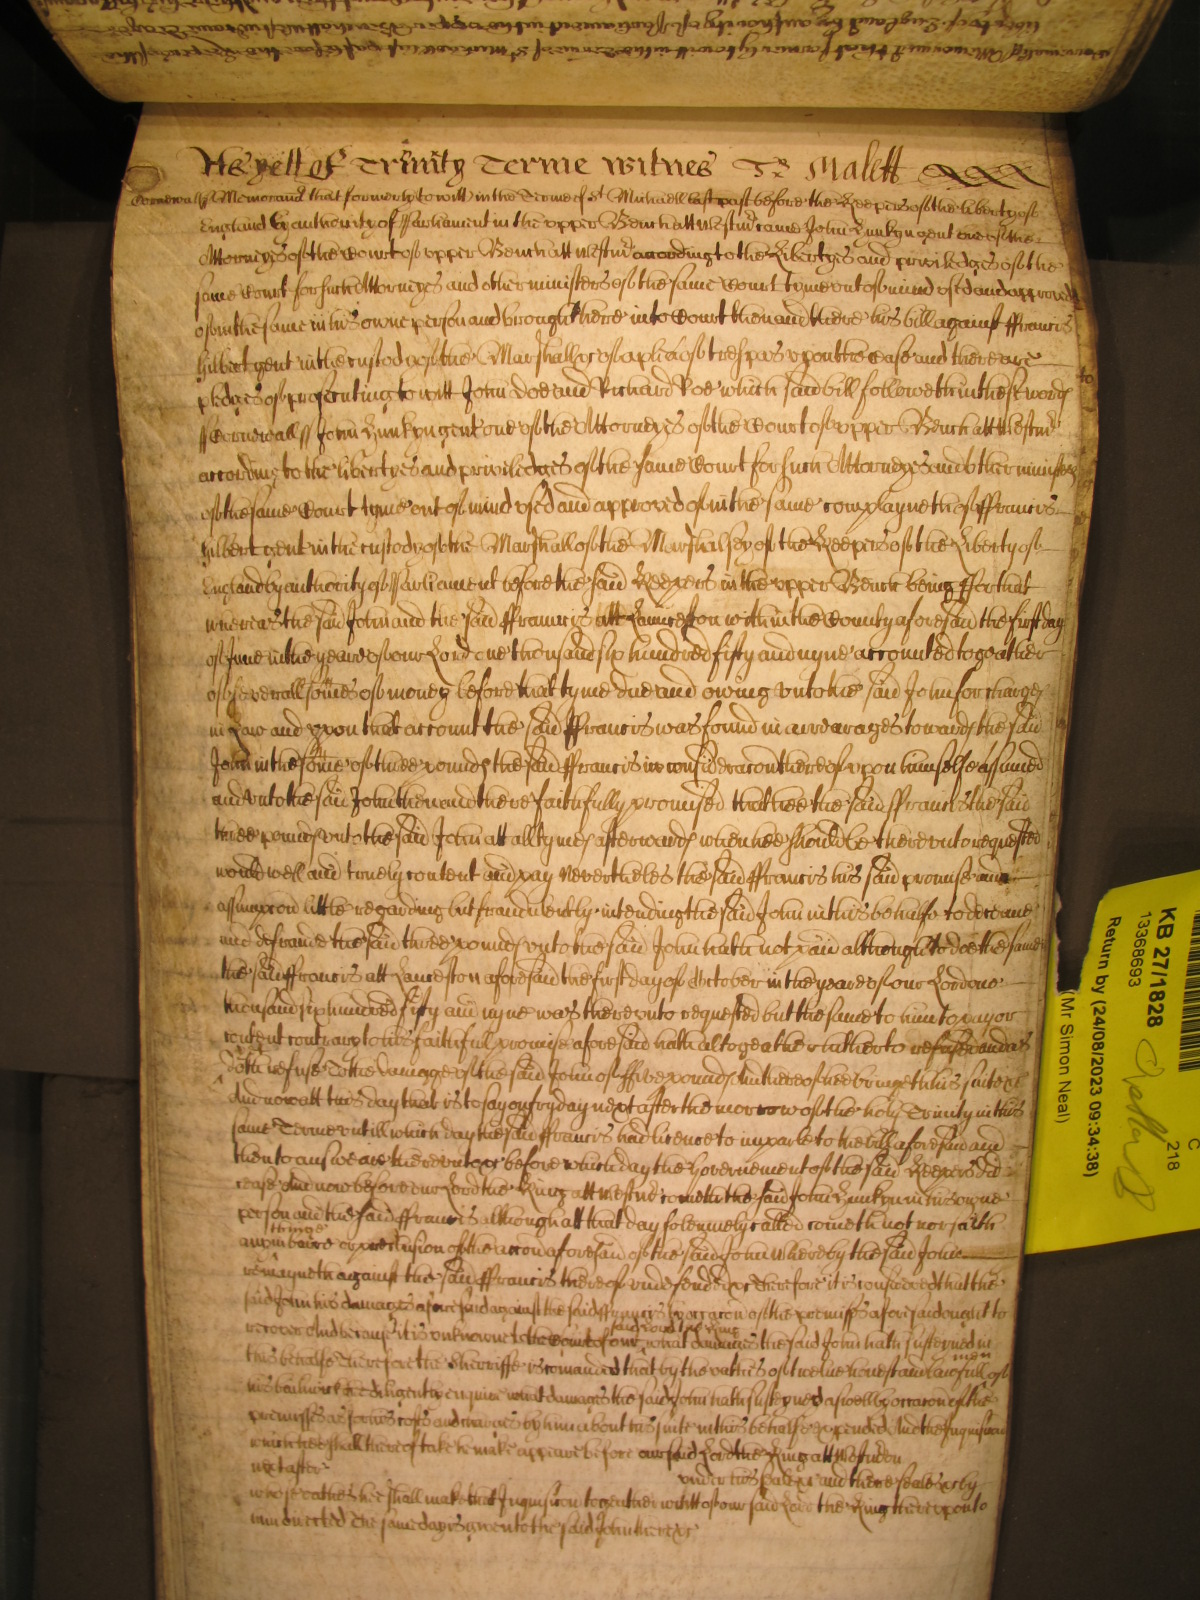 As yett of Trinity Terme witnes Tr Malett
Cornewall ss Memorand that formerly to witt in the Terme of St Michaell last past before the Keepers of the liberty of
England by authority of Parliament in the upper Bench att Westmr came John Hunkyn gent one of the
Attorneys of the Court of upper Bench att Westmr according to the Libertyes and priviledges of the
same Court for such Attorneyes and other ministers of the same Court tyme out of mind used and approved
of in the same in his owne person and brought here into Court then and there his bill against ffrancis
hilbert gent in the custody of the Marshall &c of a plea of trespas upon the Case and there are
pledges of prosecuting to witt John Doe and Richard Roe which said bill followeth in these words
ss Cornewall ss John Hunkyn gent one of the Attorneyes of the Court of upper Bench att Westmr
according to the libertyes and priviledges of the same Court for such Attorneyes and other ministers
of the same Court tyme out of mind used and approved of in the same complayneth of ffrancis
hilbert gent in the custody of the Marshall of the Marshalsey of the Keepers of the Liberty of
England by authority of Parliament before the said Keepers in the upper Bench being ffor that
whereas the said John and the said ffrancis att Launceston within the County aforesaid the first day
of June in the yeare of our Lord one thousand six hundred fifty and nyne accounted togeather
of severall somes of money before that tyme due and owing unto the said John for charges
in Law and upon that account the said ffrancis was found in arrearages towards the said
John in the some of three pounds the said ffrancis in consideracon thereof upon himselfe assumed
and unto the said John then and there faithfully promised that hee the said ffrancis the said
three pounds unto the said John att all tymes afterwards when hee should be thereunto requested
would well and truely content and pay Neverthelesse the said ffrancis his said promise and
assumpcon little regarding but fraudulently intending the said John in this behalfe to deceave
and defraude the said three pounds unto the said John hath not paid although to doe the same
the said ffrancis att Launceston aforesaid the first day of October in the yeare of our Lord one
thousand six hundred fifty and nyne was thereunto requested but the same to him to pay or
content contrary to his faithfull promise aforesaid hath altogeather hitherto refused and as
yet doth refuse To the damage of the said John of ffive pounds And thereof hee bringeth his suite &c
And now att this day that is to say on fryday next after the morrow of the holy Trinity in this
same Terme untill which day the said ffrancis had licence to imparle to the bill aforesaid and
then to answeare thereunto &c before which day the Governement of the said Keepers did
cease And now before our Lord the King att Westmr cometh the said John Hunkyn in his owne
person and the said ffrancis although att that day solemnely called cometh not nor saith
any thinge in barre or preclusion of the accon aforesaid of the said John whereby the said John
remayneth against the said ffrancis thereof undefended &c Therefore it is considered that the
said John his damages aforesaid against the said ffrancis by occacon of the premisses aforesaid ought to
recover And because it is unknowne to the Court of our said Lord the King what damages the said John hath susteyned in
this behalfe Therefore the Sherriffe is comanded that by the oathes of twelve honest and lawfull men of
his bailiwick hee diligently enquire what damages the said John hath susteyned aswell by occacon of the
premisses as for his costs and charges by him about his suite in this behalfe expended And the Inquisicon
which hee shall thereof take he make appeare before our said Lord the King att Westm on
next after under his seale &c and the seales &c by
whose oathes hee shall make that Inquisicon togeather with the writt of our said Lord the King thereupon to
him directed The same day is given to the said John there &c
KB 27/1828
13368693
Return by (24/08/2023 09:34:38)
(Mr. Simon Neal)
C
218